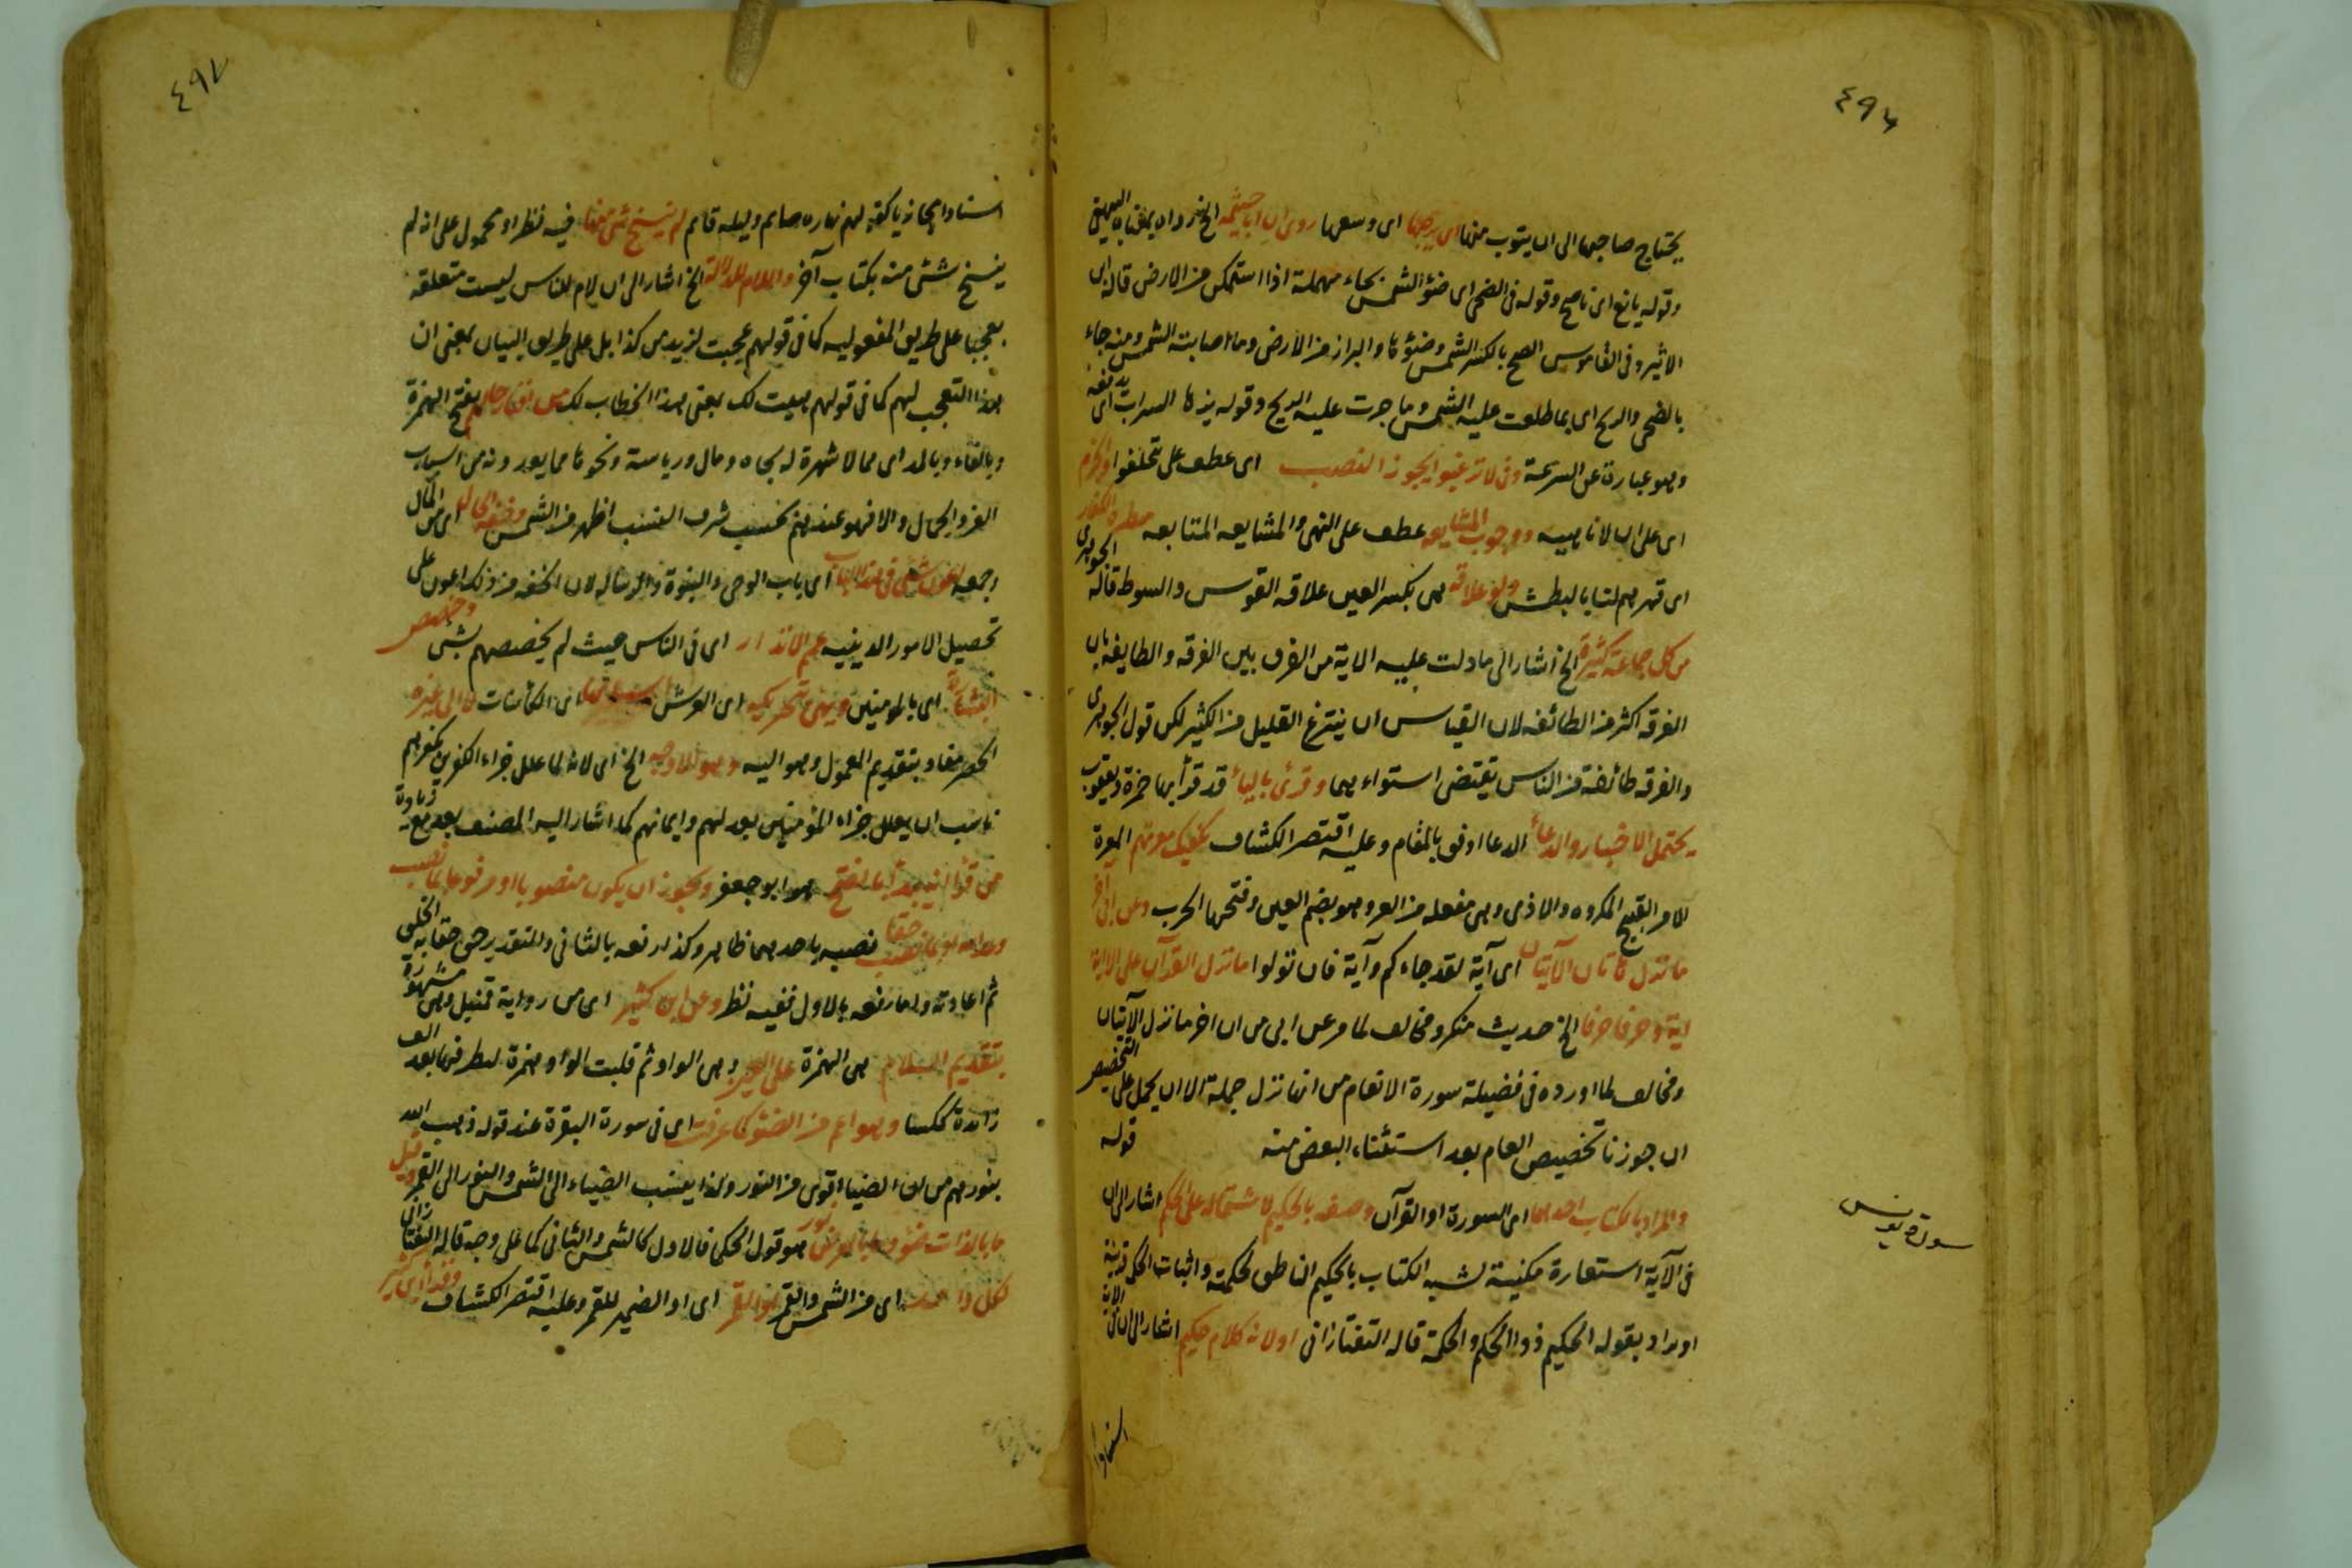 ٤٩٦
يحتاج صاجها الى ان يتوب منها اى برحبها اى وسعها روى ان ابا خيثمة الخ رواه البيهقى
وقوله يانع اى ناضج وقوله فى الضح اى ضوٴ الشمس بحاء مهملة اذا استمكن من الارض قاله ابن
الاثير وفى القاموس الضح بالكسر الشمس وضوٴها والبراز من الارض وما اصابته الشمس ومنه جاء
بالضح والريح اى بما طلعت عليه الشمس وما جرت عليه الريح وقوله يزها السراب اى يدفعه
وهو عبارة عن السرعة وفى لا ترغبوا يجوز النصب اى عطف على تتخلفوا والجزم
اى على ان لا ناهية ووجوب المشايعه عطف على النهى والمشايعه المتابعه
اى قهرهم لنا بالبطش ولو علاقه هى بكسر العين علاقه القوس والسوط قاله الجوهرى
من كل جماعة كثيرة الخ اشار الى ما دلت عليه الاية من الفرق بين الفرقه والطايفه بان
الفرقه اكثر من الطائفه لان القياس ان ينتزع القليل من الكثير لكن قول الجوهرى
والفرقه طائفة من الناس يقتضى استواءهما وقرئ بالياء قد قرأ بها حمزة ويعقوب
يحتمل الاخبار والدعاء الدعا اوفق بالمقام وعليه اقتصر الكشاف يكفيك معرتهم المعرة
الامر القبيح المكروه والاذى وهى مفعله من العر وهو بضم العين وفتحها الجرب وعن ابى آخر
ما نزل هاتان الآيتان اى آية لقد جاءكم وآية فان تولوا ما نزل القرآن على الا اية
اية وحرفا حرفا الخ حديث منكر ومخالف لما مر عن ابى من ان اخر ما نزل الآيتان
ومخالف لما اورده فى فضيلة سورة الانعام من انها نزل جملة الا ان يحمل على التخصيص
ان جوزنا تخصيص العام بعد استثناء البعض منه قوله
سورة يونس
والمراد بالكتاب احدهما اى السورة او القرآن وصفه بالحكيم لاشتماله على الحكم اشار الى ان
فى الآية استعارة مكنية لشبه الكتاب بالحكيم الناطق بحكمته واثبات الحكم قرينة
او يراد بقوله الحكيم ذو الحكم والحكمة قاله التفتازانى او لانه كلام حكيم اشار الى ان فى الاية
اسنادا
٤٩٧
اسنادا مجازيا كقولهم نهاره صايم وليله قايم لم ينسخ شى منها فيه نظر او محمول على انه لم
ينسخ شئ منه بكتاب آخر واللام للدلالة الخ اشار الى ان لام للناس ليست متعلقه
بعجبا على طريق المفعوليه كما فى قولهم عجبت لزيد من كذا بل على طريق البيان بمعنى ان
هذا التعجب لهم كما فى قولهم هيت لك بمعنى هذا الخطاب لك من افناء رجالهم بفتح الهمزة
وبالفاء وبالمد اى مما لا شهرة له بجاه ومال ورياسة ونحوها مما يعدونه من اسباب
العز والجمال والا فهو عندهم بحسب شرف النسب اظهر من الشمس وخفة الحال اى من المال
وجمعه اعون شئ فى هذا الباب اى باب الوحى والنبوة والرساله لان الخفه من ذلك اعون على
تحصيل الامور الدينيه عمم الانذار اى فى الناس حيث لم يخصصهم بشئ وخصص
البشارة اى بالمومنين ويهئ تحريكه اى العرش اى الكائنات لا الى غيره
الحصر مفاد بتقديم المعمول وهو اليه وهو الاوجه الخ اى لانه لما علل جزاء الكفرين بكفرهم
ناسب ان يعلل جزاء المؤمنين بعدلهم وايمانهم كما اشار اليه المصنف بعد مع زيادة
من قرأ انه يبدأ بالفتح هو ابو جعفر ويجوز ان يكون منصوبا او مرفوعا بما نصب
وعد الله او بما نصب حقا نصبه باحدهما ظاهر وكذا رفعه بالثانى والتقدير حق حقا بدء الخلق
ثم اعادته واما رفعه بالاول ففيه نظر وعن ابن كثير اى من رواية قنبل وهى مشهورة
بتقديم اللام هى الهمزة على العين وهى الواو ثم قلبت الواو همزة لتطرفها بعد الف
زائدة ككسا وهو اعم من الضوٴ كما عرفت اى فى سورة البقرة عند قوله ذهب الله
بنورهم من ان الضياء اقوى من النور ولذا ينسب الضياء الى الشمس والنور الى القمر وقيل
ما بالذات ضوٴ وما بالعرض نور هو قول الحكى فالاول كالشمس والثانى كما على وجه قاله التفتازانى
لكل واحد اى من الشمس والقمر او للقمر اى او الضمير للقمر وعليه اقتصر الكشاف وقرأ ابن كثير